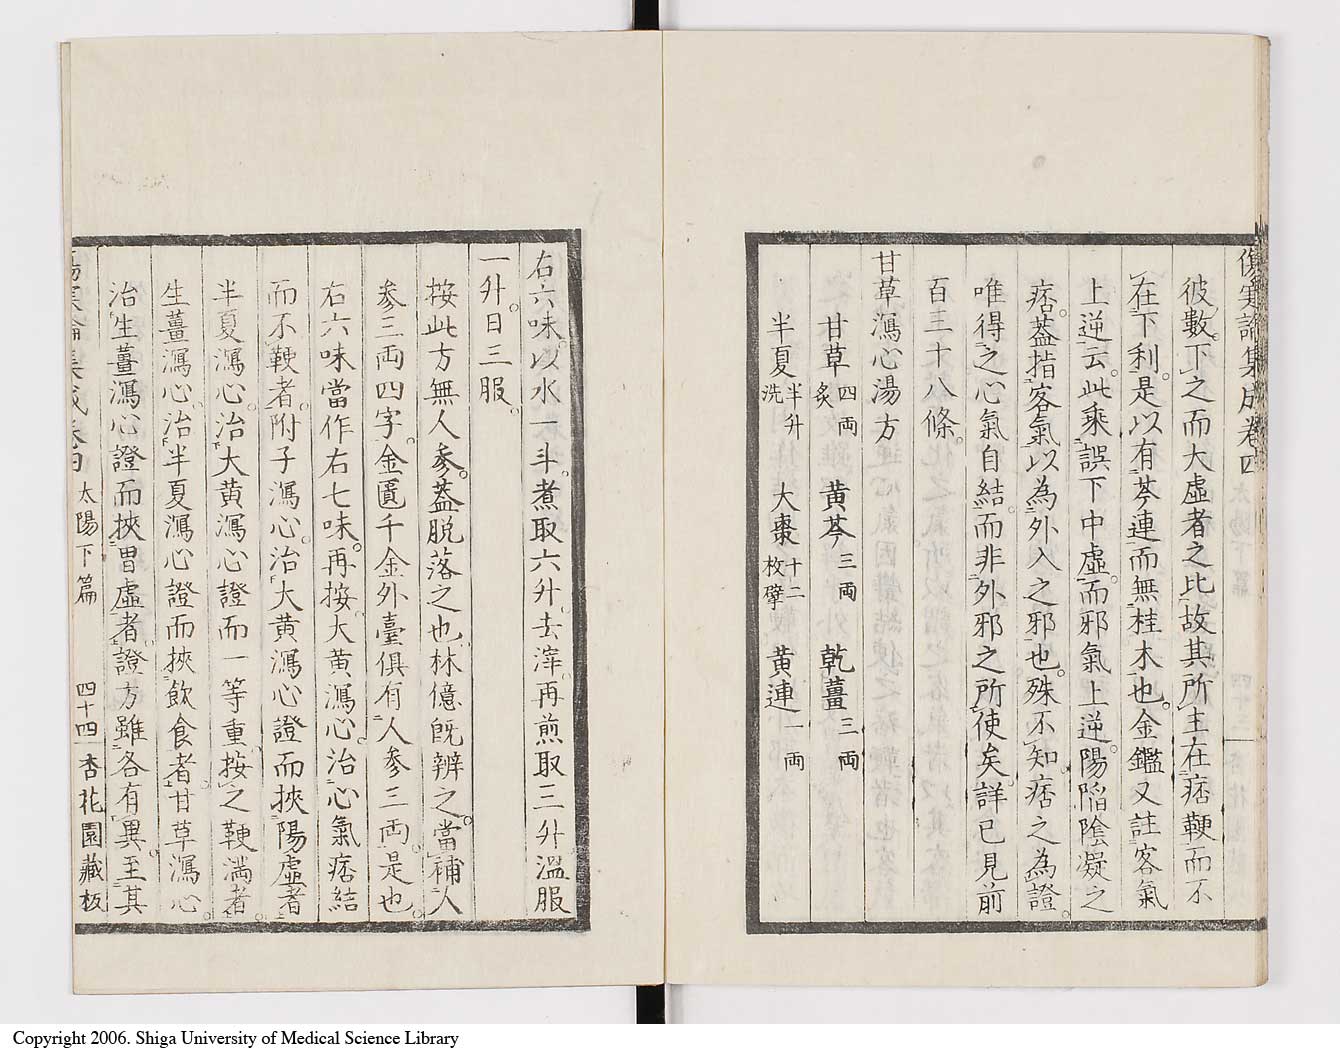 傷寒論集成卷四
彼數下之而大虛者之比故其所主在痞鞕而不
在下利是以有芩連而無桂朮也金鑑又註客氣
上逆云此乘誤下中虛而邪氣上逆陽陷陰凝之
痞蓋指客氣以為外入之邪也殊不知痞之為證
唯得之心氣自結而非外邪之所使矣詳已見前
百三十八條
甘草瀉心湯方
甘草四兩炙 黃芩三兩 乾薑三兩
半夏半升洗 大棗十二枚擘 黃連一兩
右六味以水一斗煮取六升去滓再煎取三升溫服
一升日三服
按此方無人參蓋脱落之也林億既辨之當補人
參三兩四字金匱千金外臺俱有人參三兩是也
右六味當作右七味再按大黃瀉心治心氣痞結
而不鞕者附子瀉心治大黃瀉心證而挾陽虛者
半夏瀉心治大黃瀉心證而一等重按之鞕滿者
生薑瀉心治半夏瀉心證而挾飲食者甘草瀉心
治生薑瀉心證而挾胃虛者證方雖各有異至其
傷寒論集成卷四 太陽下篇 四十四 杏花園藏板
Copyright 2006. Shiga University of Medical Science Library